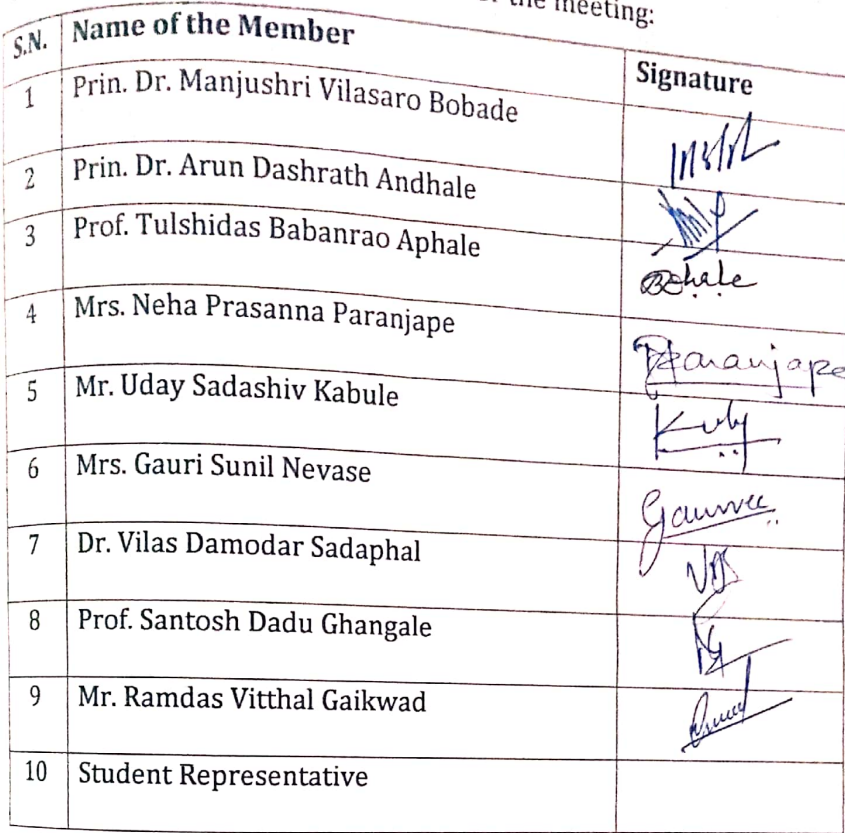 the meeting:
S.N. Name of the Member Signature
1 Prin. Dr. Manjushri Vilasaro Bobade
2 Prin. Dr. Arun Dashrath Andhale
3 Prof. Tulshidas Babanrao Aphale
4 Mrs. Neha Prasanna Paranjape Paranjape
5 Mr. Uday Sadashiv Kabule
6 Mrs. Gauri Sunil Nevase
7 Dr. Vilas Damodar Sadaphal
8 Prof. Santosh Dadu Ghangale
9 Mr. Ramdas Vitthal Gaikwad
10 Student Representative